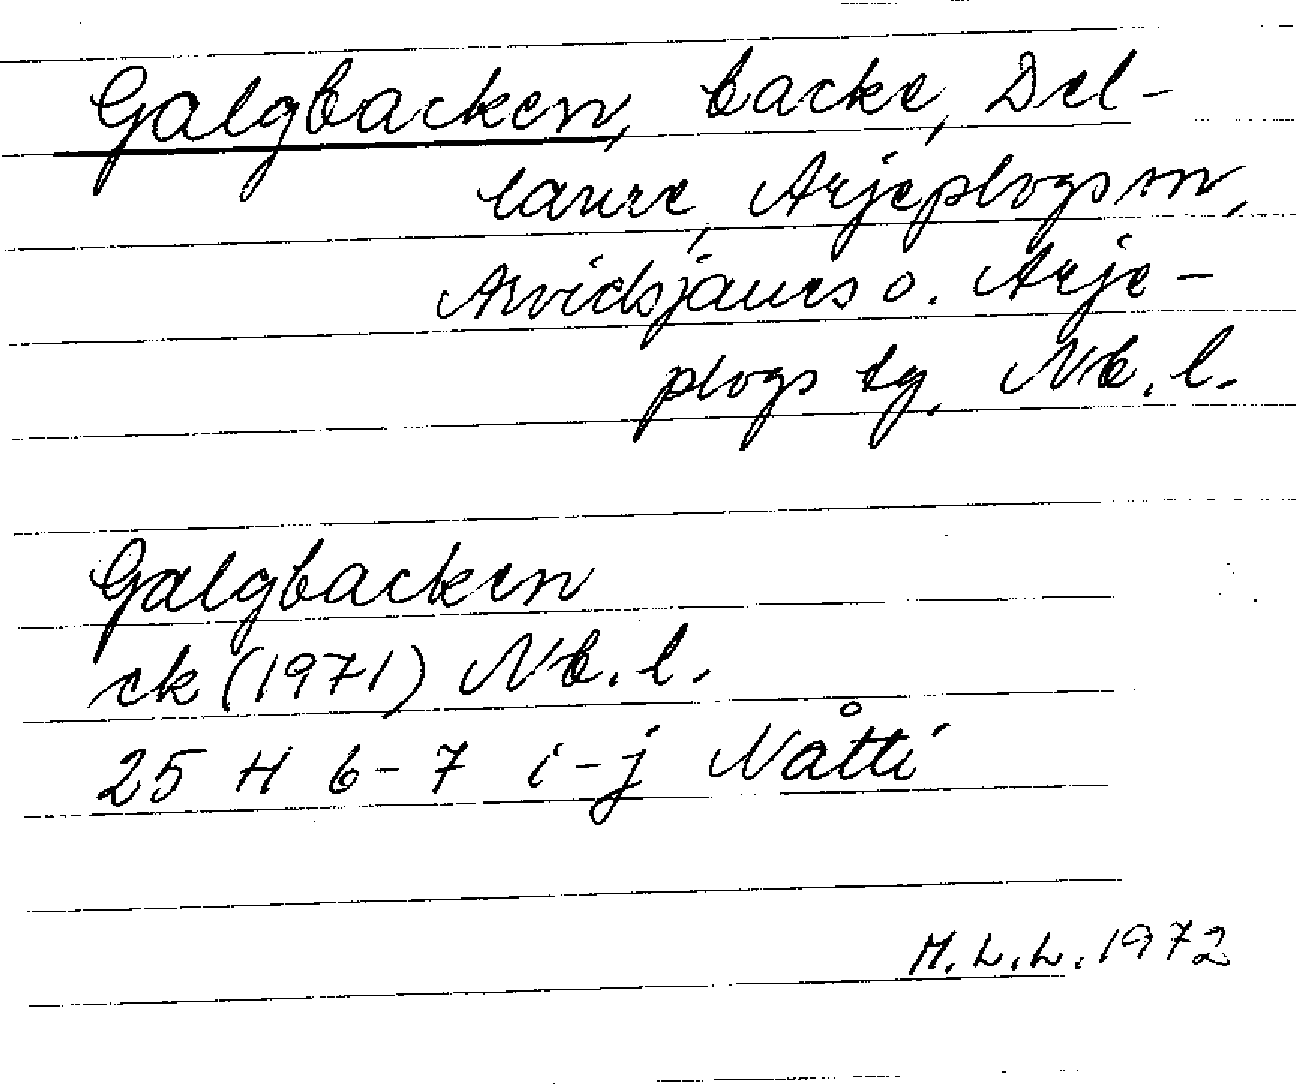 Galgbacken, backe, Del-
laure, Arjeplogs sn,
Arvidsjaurs o. Arje-
plogs tg, Nb. l.
Galgbacken
ek (1971) Nb. l.
25 H 6-7 i-j Nåtti
M.L.L. 1972